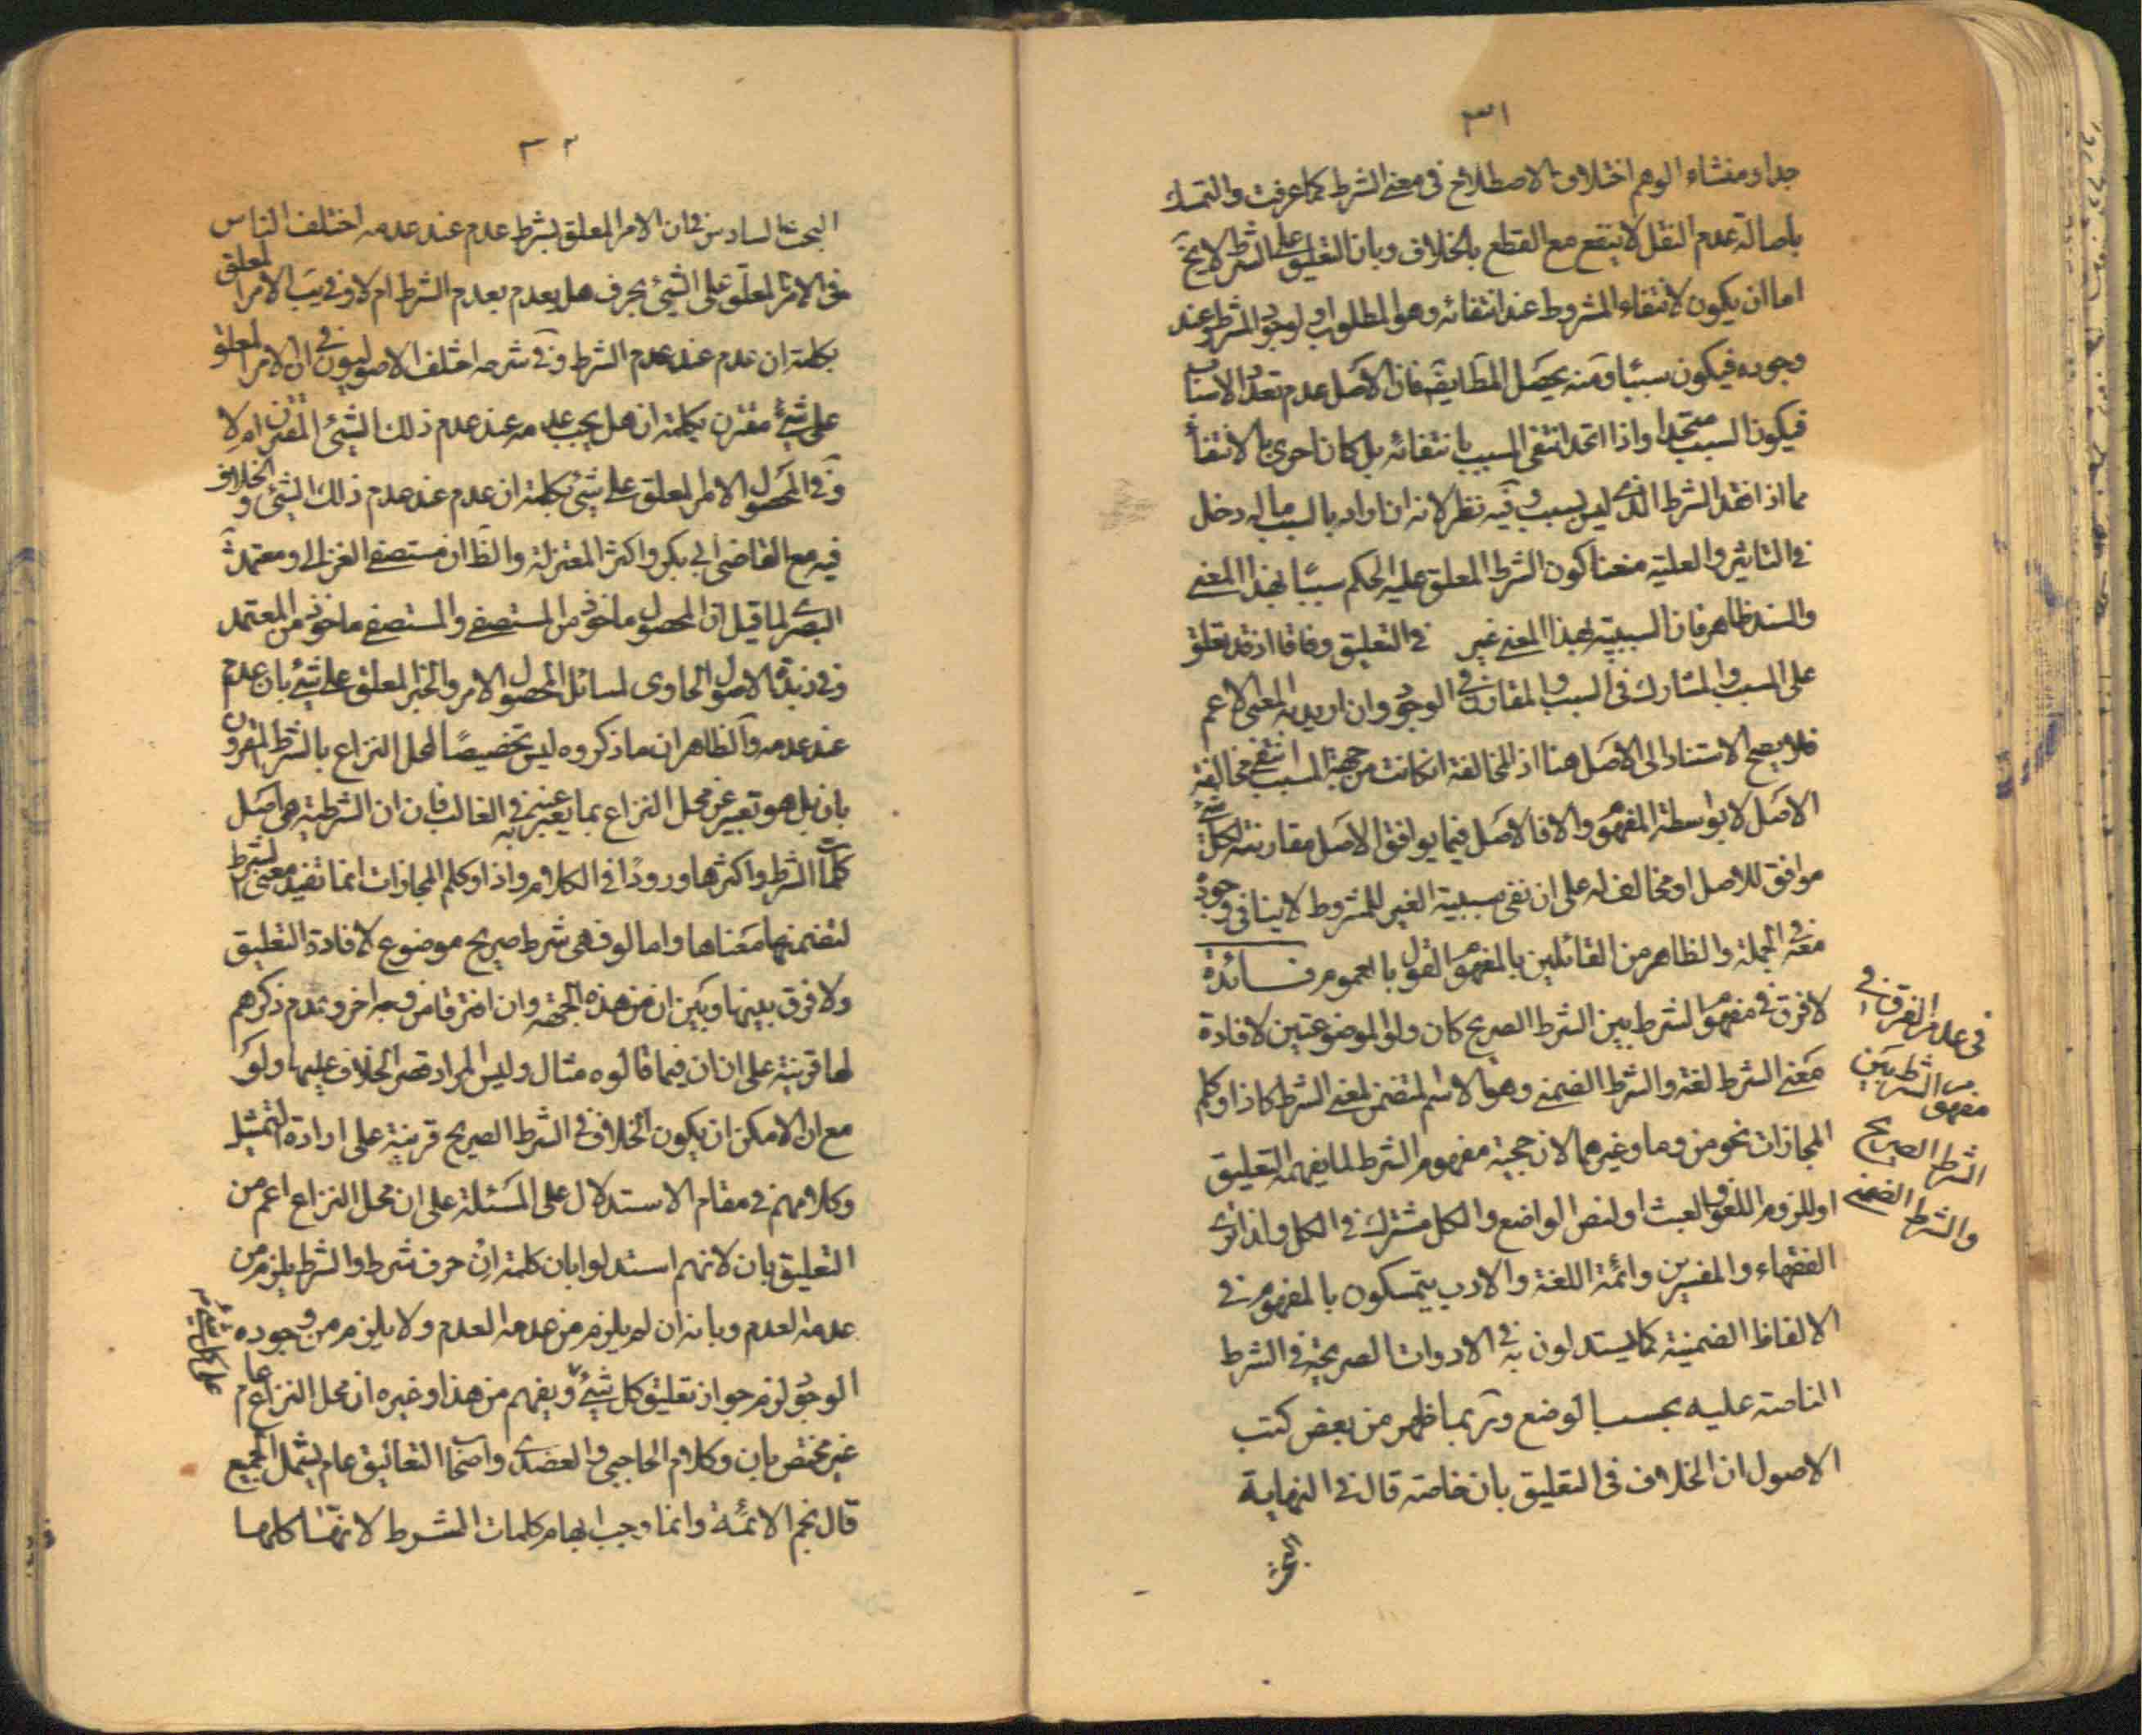 ٣١
جدا ومنشاء الوهم اختلاف الاصطلاح فى معنى الشرط كما عرفت والتمسك
باصالة عدم النقل لا ينفع مع القطع بالخلاف وبان التعليق على الشرط لا يخ
اما ان يكون لانتفاء المشروط عند انتفائه وهو المطلوب او لوجود المشروط عند
وجوده فيكون سببا ومنه يحصل المطابقة فان الاصل عدم تعدد الاسباب
فيكون السبب متحدا واذا اتحد انتفى المسبب بانتفائه بل كان احرى بالانتفاء
مما اذا فقد الشرط الذى ليس بسبب وفيه نظر لانه ان اراد بالسبب ما له دخل
فى التاثير والعلية منعنا كون الشرط المعلق عليه الحكم سببا بهذا المعنى
والسند ظاهر فان السببية بهذا المعنى غير فى التعليق وفاقا اذ قد تعلق
على المسبب والمشارك فى السبب والمقارن فى الوجود وان اريد به المعنى الاعم
فلا يصح الاستناد الى الاصل هنا اذ المخالفة ان كانت من جهة السبب انتفى مخالفة
الاصل لا بواسطة المفهوم والا فالاصل فيما يوافق الاصل مقارنته لكل شئ
موافق للاصل او مخالف له على ان نفى سببية الغير للمشروط لا ينافى وجود
معه فى الجملة والظاهر من القائلين بالمفهوم القول بالعموم فائدة
لا فرق فى مفهوم الشرط بين الشرط الصريح كان ولو الموضوعتين لافادة
معنى الشرط لغة والشرط الضمنى وهو الاسم المتضمن لمعنى الشرط كاذا وكلم
المجازات نحو من وما وغيرهما لان حجية مفهوم الشرط لما يفهمه التعليق
او للزوم اللغو والعبث او لنص الواضع والكل مشترك فى الكل ولذا ترى
الفقهاء والمفسرين وائمة اللغة والادب يتمسكون بالمفهوم فى
الالفاظ الضمنية كما يستدلون به فى الادوات الصريحة فى الشرط
الناصة عليه بحسب الوضع وربما ظهر من بعض كتب
الاصول ان الخلاف فى التعليق بان خاصة قال فى النهاية
البحث
فى عدم الفرق فى
مفهوم الشرط بين
الشرط الصريح
والشرط الضمنى
٣٢
البحث السادس فى ان الامر المعلق بشرط عدم عند عدمه اختلف الناس
فى الامر المعلق على الشئ بحرف هل يعدم بعدم الشرط ام لا وفى يب الامر المعلق
بكلمة ان عدم عند عدم الشرط وفى شرحه اختلف الاصوليون فى ان الامر المعلق
على شئ مقترن بكلمة ان هل يجب عدمه عند عدم ذلك الشئ المقترن ام لا
وفى المحصول الامر المعلق على شئ بكلمة ان عدم عند عدم ذلك الشئ والخلاف
فيه مع القاضى ابى بكر واكثر المعتزلة والظ ان مستصفى الغزالى ومعتمد
البصرى لما قيل ان المحصول ماخوذ من المستصفى والمستصفى ماخوذ من المعتمد
وفى زبدة الاصول الحاوى لمسائل المحصول الامر والخبر المعلق على شئ بان عدم
عند عدمه والظاهر ان ما ذكروه ليس تخصيصًا لمحل النزاع بالشرط المقرون
بان بل هو تعبير عن محل النزاع بما يعبر به عنه فى الغالب فان ان الشرطية هى اصل
كلمات الشرط واكثرها ورودًا فى الكلام واذا وكلم المجازات انما تفيد معنى الشرط
لتضمنها معناها واما لو فهى شرط صريح موضوع لافادة التعليق
ولا فرق بينها وبين ان من هذه الجهة وان افترقا من وجه اخر وعدم ذكرهم
لها قرينة على ان ان فيما قالوه مثال وليس المراد قصر الخلاف عليها ولو
مع ان الامكن ان يكون الخلاف فى الشرط الصريح قرينة على ارادة التمثيل
وكلامهم فى مقام الاستدلال على المسئلة على ان محل النزاع اعم من
التعليق بان لانهم استدلوا بان كلمة ان حرف شرط والشرط يلزم من
عدمه العدم وبانه ان لم يلزم من عدمه العدم ولا يلزم من وجوده
الوجود لزم جواز تعليق كل شئ ويفهم من هذا وغيره ان محل النزاع عام
غير مختص بان وكلام الحاجبى والعضدى واصحاب التعاليق عام يشمل الجميع
قال نجم الائمة وانما وجب ابهام كلمات الشرط لانها كلها
على كل شئ م